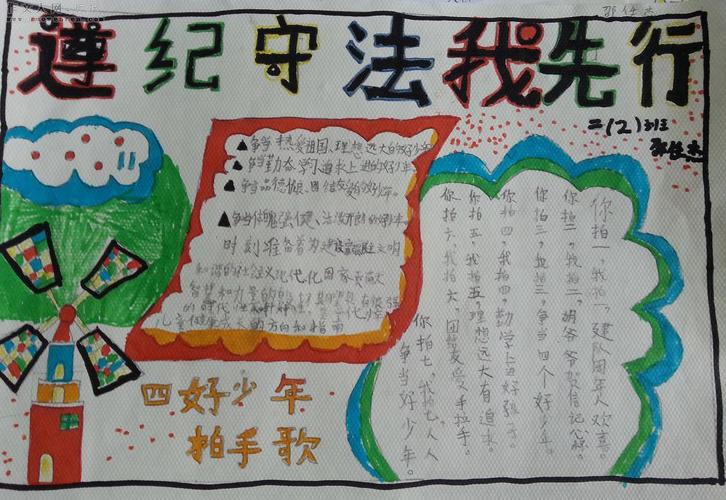 邵佳杰
遵纪守法我先行
二(2)班
邵佳杰
▲争当热爱祖国、理想远大的好少年
▲争当勤奋学习追求上进的好少年
▲争当品德
▲争当体魄强健、活泼开朗的好少年
时刻准备着为建设富强 文明
和谐的社会主义现代化国家贡献
智慧和力量
的时代
儿童健康成长的方向和指南
四好少年
拍手歌
你拍一，我拍一，建队周年人欢喜。
你拍二，我拍二，胡爷爷贺信记心怀。
你拍三，我拍三，争当四个好少年。
你拍四，我拍四，勤学上进好孩子。
你拍五，我拍五，理想远大有追求。
你拍六，我拍六，团结友爱手拉手。
你拍七，我拍七，人人
争当好少年。